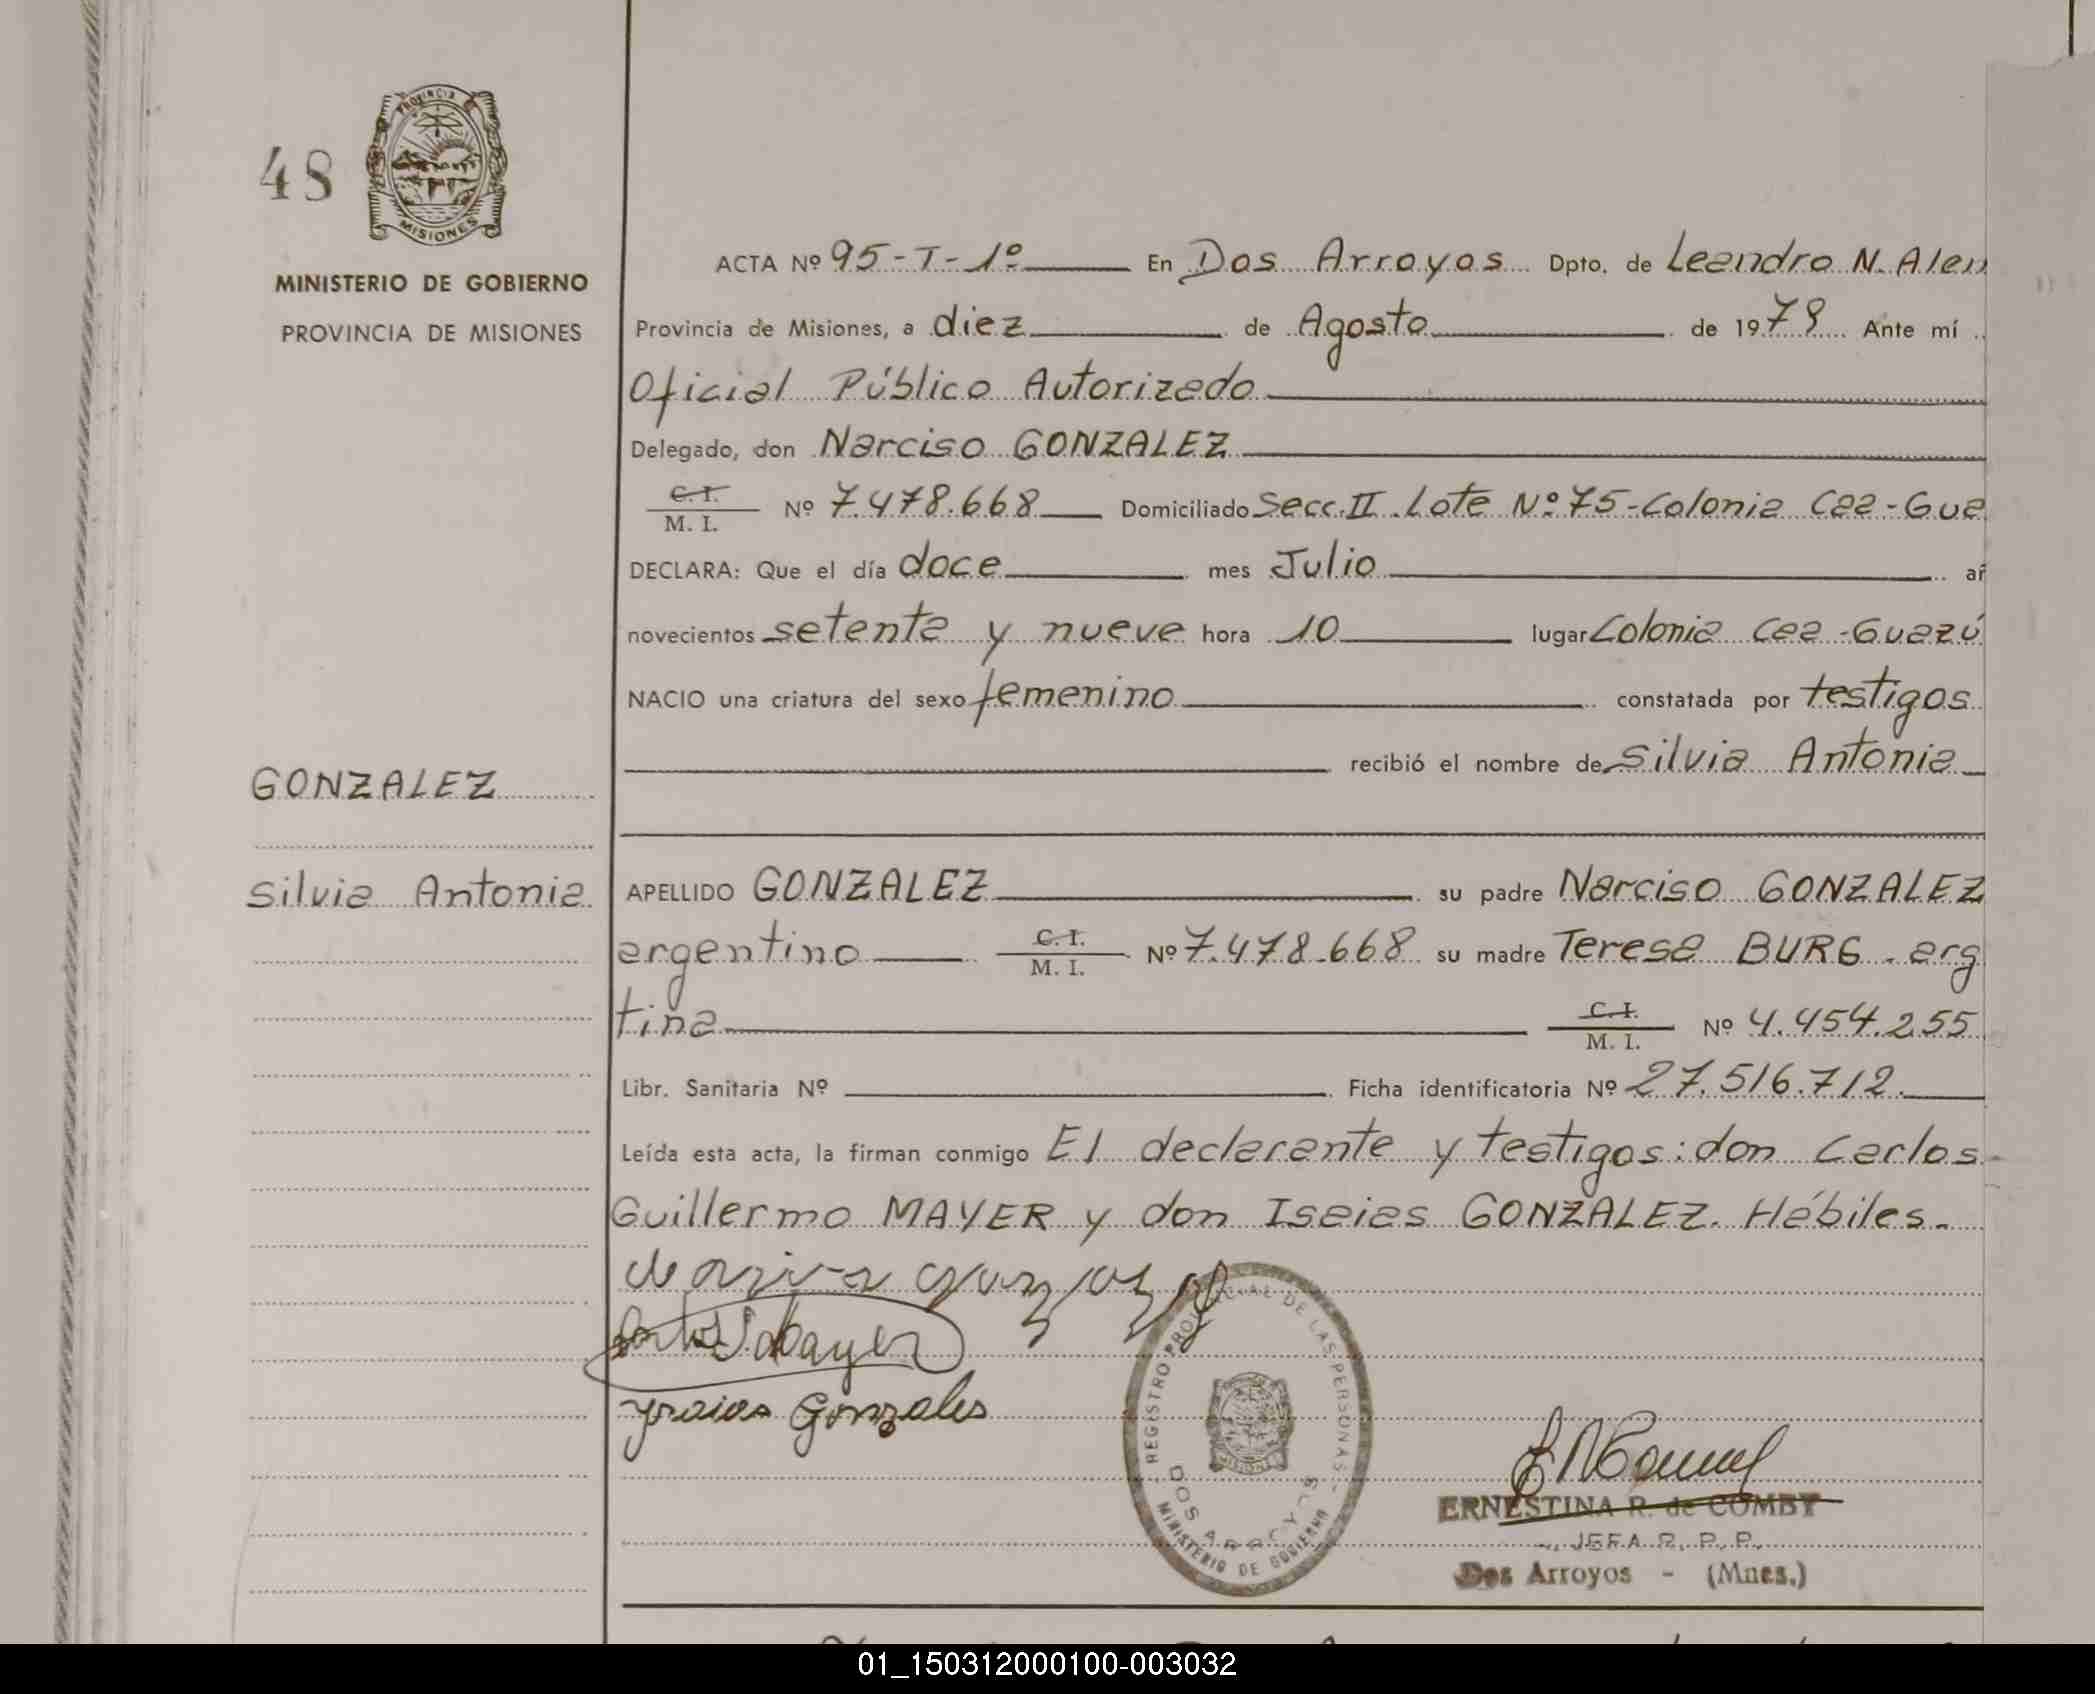 48
PROVINCIA
MISIONES
MINISTERIO DE GOBIERNO
PROVINCIA DE MISIONES
ACTA Nº 95-T-1º En Dos Arroyos Dpto. de Leandro N. Alem
Provincia de Misiones, a diez de Agosto de 1979 Ante mí
Oficial Público Autorizado
Delegado, don Narciso GONZALEZ
C. I.
M. I. Nº 7.478.668 Domiciliado Secc. II Lote Nº 75-Colonia Caa-Gua
DECLARA: Que el día doce mes Julio añ
novecientos setenta y nueve hora 10 lugar Colonia Caa-Guazú
NACIO una criatura del sexo femenino constatada por testigos
recibió el nombre de Silvia Antonia
GONZALEZ
Silvia Antonia
APELLIDO GONZALEZ su padre Narciso GONZALEZ
argentino C. I.
M. I. Nº 7.478.668 su madre Teresa BURG. arg
tina C. I.
M. I. Nº 4.454.255
Libr. Sanitaria Nº Ficha identificatoria Nº 27.516.712.
Leída esta acta, la firman conmigo El declarante y testigos: don Carlos
Guillermo MAYER y don Isaias GONZALEZ. Hábiles.
Mayer
Ysaias Gonzales
REGISTRO PROVINCIAL DE LAS PERSONAS
DOS ARROYOS
MINISTERIO DE GOBIERNO
ERNESTINA R. de COMBY
JEFA R. P. P.
Dos Arroyos - (Mnes.)
01_150312000100-003032